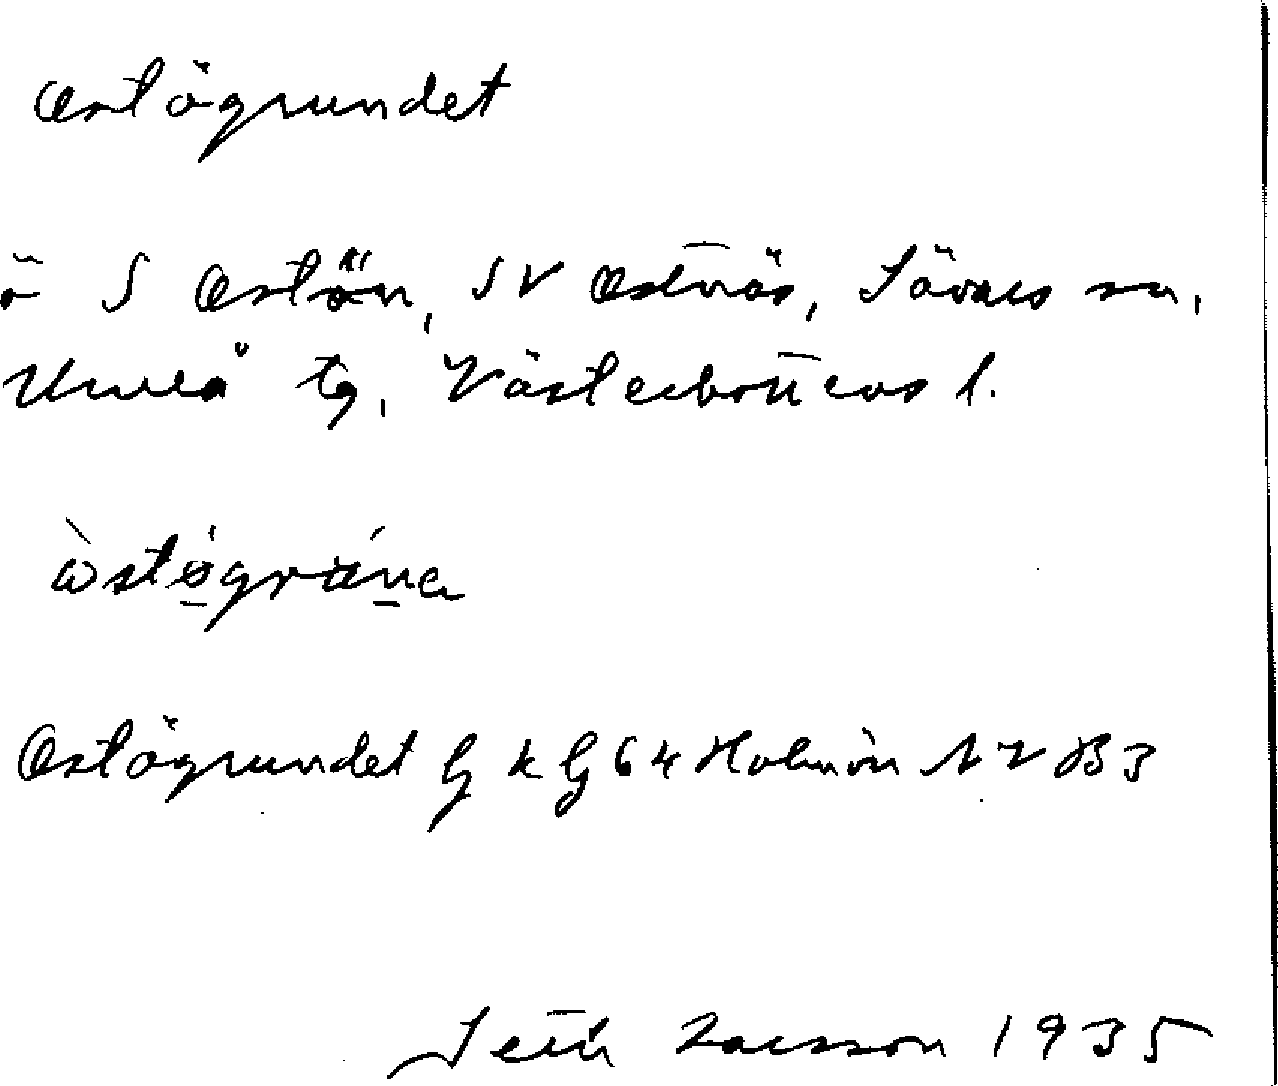 Ostögrundet
ö S Ostön, SV Ostnäs, Sävars sn,
Umeå tg, Västerbottens l.
ὼstögrúna
Ostögrundet G k G 64 Holmön NV B3
Seth Larsson 1935